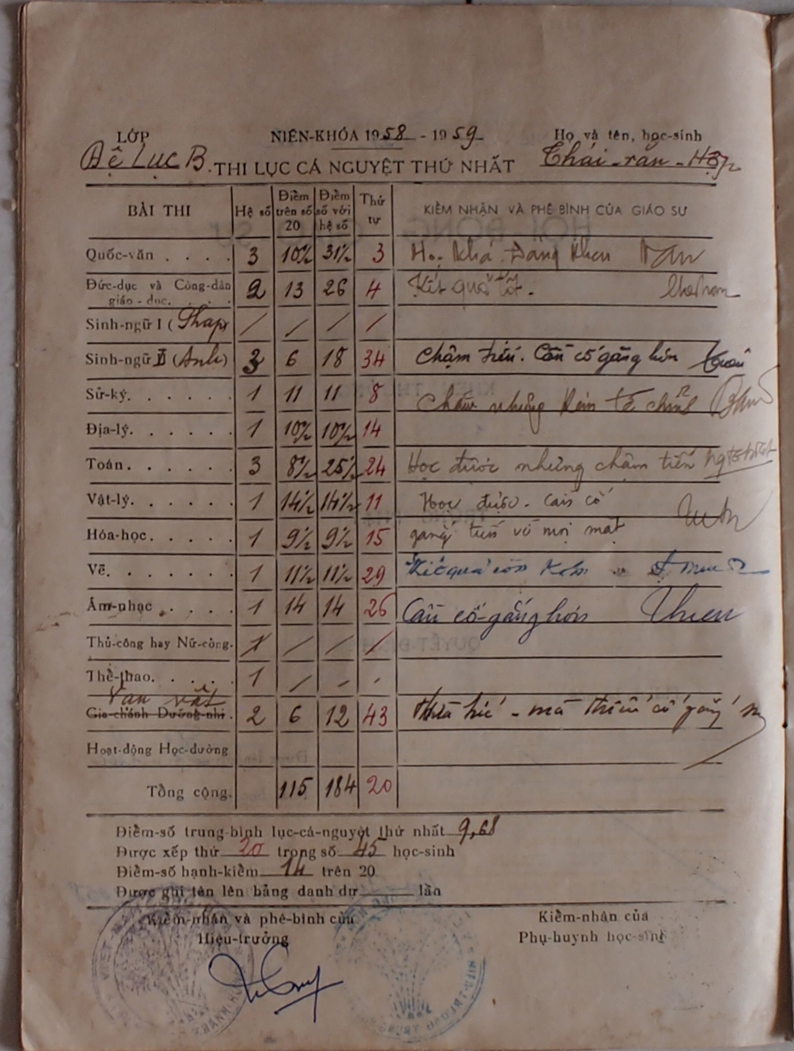 LỚP NIÊN-KHÓA 1958 - 1959 Họ và tên, học-sinh
Đệ Lục B. THI LỤC CÁ NGUYỆT THỨ NHẤT Thái-văn-Hợp
BÀI THI Hệ số Điểm trên số 20 Điểm số với hệ số Thứ tự KIỂM NHẬN VÀ PHÊ BÌNH CỦA GIÁO SƯ
Quốc-văn . . . . 3 10½ 31½ 3 Học khá. Đáng khen
Đức-dục và Công-dân
giáo-dục. . . . . 2 13 26 4 Kết quả tốt.
Sinh-ngữ I (Pháp) / / / /
Sinh-ngữ II (Anh) 3 6 18 34 Chậm tiến. Cần cố gắng hơn
Sử-ký. . . . . . 1 11 11 8
Địa-lý. . . . . . 1 10½ 10½ 14
Toán. . . . . . 3 8½ 25½ 24 Học được nhưng chậm tiến
Vật-lý. . . . . . 1 14½ 14½ 11 Học được. Cần cố
Hóa-học. . . . . 1 9½ 9½ 15 gắng tiến về mọi mặt
Vẽ. . . . . . . 1 11½ 11½ 29
Âm-nhạc . . . . 1 14 14 26 Cần cố-gắng hơn Thien
Thủ-công hay Nữ-công. / / / /
Thể-thao. . . . . 1 / / /
Vạn vật
Gia-chánh Dưỡng-nhi . 2 6 12 43
Hoạt-động Học-đường
Tổng cộng. 115 184 20
Điểm-số trung-bình lục-cá-nguyệt thứ nhất 9,68
Được xếp thứ 20 trong số 45 học-sinh
Điểm-số hạnh-kiểm 14 trên 20
Được ghi tên lên bảng danh dự lần
Kiểm-nhận và phê-bình của Kiểm-nhận của
Hiệu-trưởng Phụ-huynh học-sinh